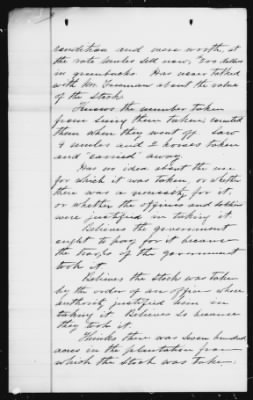 condition and were worth, at
the rate mules sell now, 200 dollars
in greenbacks. Has never talked
with Mr. Freeman about the value
of the stock
Knows the number taken
from seeing them taken, counted
them when they went off. Saw
4 mules and 2 horses taken
and carried away.
Has no idea about the use
for which it was taken, or whether
there was a necessity for it,
or whether the officers and soldiers
were justified in taking it.
Believes the government
ought to pay for it because
the troops of the government
took it.
Believes the stock was taken
by the order of an officer whose
authority justified him in
taking it. Believes so because
they took it.
Thinks there was seven hundred
acres in the plantation from
which the stock was taken.